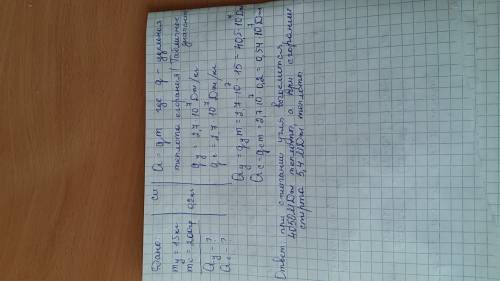 Дано:
mу = 15 кг
mс = 200 гр
Qу = ?
Qс = ?
СИ
0,2 кг
Q = qm где q - удельная
теплота сгорания (Табличное
значение)
qу = 2,7 · 10⁷ Дж/кг
qс = 2,7 · 10⁷ Дж/кг
Qу = qуm = 2,7 · 10⁷ · 15 = 40,5 · 10⁷ Дж
Qс = qсm = 2,7 · 10⁷ · 0,2 = 0,54 · 10⁷ Дж
Ответ: при сгорании угля выделится
405 МДж теплоты, а при сгорании
спирта 5,4 МДж теплоты.